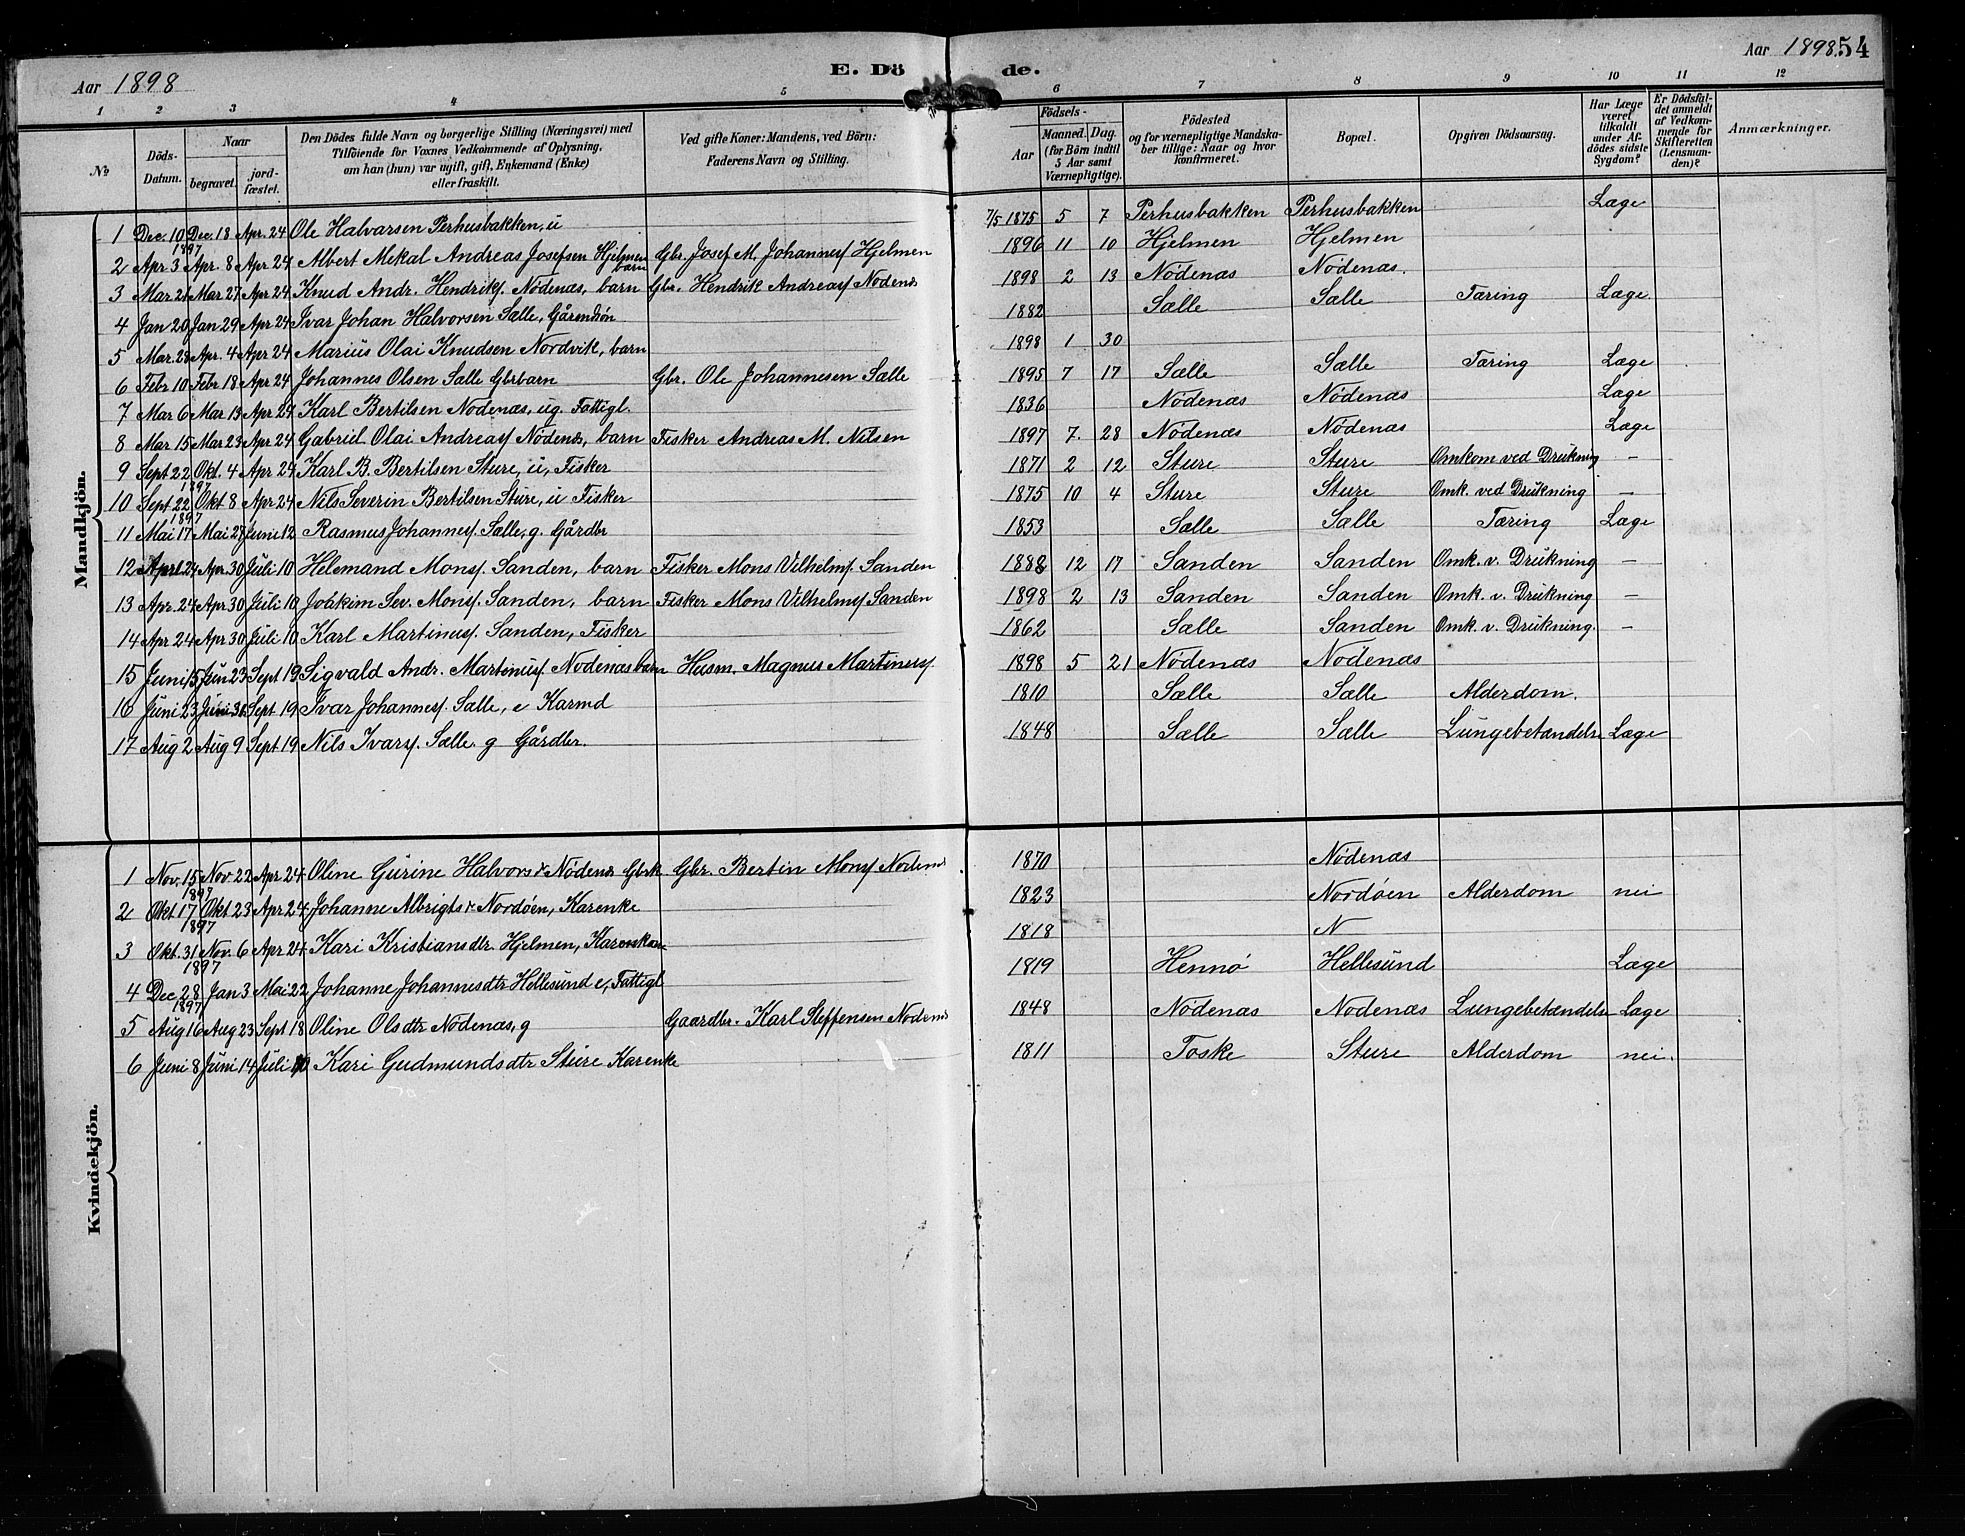 Aar 1898 E. Dö de. Aar 1898. 54
1 2 3 4 5 6 7 8 9 10 11 12
No
Döds-Datum.
Naar
begravet.
jord-fæstet.
Den Dödes fulde Navn og borgerlige Stilling (Næringsvei) med
Tilföiende for Voxnes Vedkommende af Oplysning,
om han (hun) var ugift, gift, Enkemand (Enke)
eller fraskilt.
Ved gifte Koner: Mandens, ved Börn:
Faderens Navn og Stilling.
Födsels-
Aar
Maaned. Dag.
(for Börn indtil
5 Aar samt
Værnepligtige).
Födested
og for værnepligtige Mandska-
ber tillige: Naar og hvor
konfirmeret.
Bopæl.
Opgiven Dödsaarsag.
Har Læge
været
tilkaldt
under Af-
dödes sidste
Sygdom?
Er Dödsfal-
det anmeldt
af Vedkom-
mende for
Skifteretten
(Lensman-
den)?
Anmærkninger.
Mandkjön.
1 Dec. 10 1897 Dec. 18 Apr. 24 Ole Halvarsen Perhusbakken, u 7/5 1875 5 7 Perhusbakken Perhusbakken Læge
2 Apr 3 Apr. 8 Apr 24 Albert Mekal Andreas Josefsen Hjelmen barn Gbr. Josef M. Johannesf Hjelmen 1896 11 10 Hjelmen Hjelmen
3 Mar 21 Mar 27 Apr 24 Knud Andr. Hendriksf. Nødenæs, barn Gbr. Hendrik Andreasf Nodenæs 1898 2 13 Nödenæs Nödenæs.
4 Jan 20 Jan 29 Apr 24 Ivar Johan Halvorsen Sælle, Gårmdsøn 1882 Sælle Sælle Tæring Læge
5 Mar. 28 Apr. 4 Apr 24 Marius Olai Knudsen Nordvik, barn 1898 1 30
6 Febr 10 Febr 18 Apr 24 Johannes Olsen Sælle Gbrbarn Gbr. Ole Johannesen Sælle 1895 7 17 Sælle Sælle Tæring Læge
7 Mar 6 Mar 13 Apr 24 Karl Bertilsen Nodenæs, ug. Fattigl. 1836 Nødenæs Nødenæs Læge
8 Mar 15 Mar 23 Apr 24 Gabriel Olai Andreasf Nødenæs, barn Fisker Andreas M. Nilsen 1897 7. 28 Nødenæs Nødenæs Læge
9 Sept 22 1897 Okt. 4 Apr 24 Karl B. Bertilsen Sture, u, Fisker 1871 2 12 Sture Sture Omkom ved Drukning —
10 Sept 22 1897 Okt 8 Apr 24 Nils Severin Bertilsen Sture, u Fisker 1875 10 4 Sture Sture Omk. ved Drukning —
11 Mai 17 Mai 27 Juni 12 Rasmus Johannesf. Sælle, g. Gårdbr 1853 Sælle Sælle Tæring Læge
12 Apr 24 Apr. 30 Juli 10 Helemand Monsf. Sanden, barn Fisker Mons Vilhelmsf Sanden 1888 12 17 Sanden Sanden Omk. v. Drukning —
13 Apr. 24 Apr 30 Juli 10 Joakim Sev. Monsf Sanden, barn Fisker Mons Vilhelmsf Sanden 1898 2 13 Sanden Sanden Omk. v. Drukning —
14 Apr 24 Apr 30 Juli 10 Karl Martinusf. Sanden, Fisker 1862 Sælle Sanden Omk. v. Drukning. —
15 Juni 15 Jun 23 Sept 19 Sigvald Andr. Martinusf Nodenæs barn Husm. Magnus Martinusf 1898 5 21 Nødenæs Nødenæs
16 Juni 23 Juni 30 Sept 19 Ivar Johannesf. Sælle, e Karmd 1810 Sælle Sælle Alderdom.
17 Aug 2 Aug 9 Sept 19 Nils Ivarsf. Sælle. g Gårdbr. 1848 Sælle Sælle Lungebetændelse Læge
Kvindekjön.
1 Nov. 15 1897 Nov 22 Apr 24 Oline Gurine Halvorsdr Nødenæs Gbrk Gbr. Bertin Monsf Nodenæs 1870 Nødenæs
2 Okt 17 1897 Okt 23 Apr 24 Johanne Albrigtsdr Nordøen, Karenke 1823 Nordøen Alderdom nei
3 Okt. 31 1897 Nov. 6 Apr 24 Kari Kristiansdtr. Hjelmen, Karenkone 1818 N
4 Dec 28 1897 Jan 3 Mai 22 Johanne Johannesdtr Hellesund e, Fattigl 1819 Hennø Hellesund Læge
5 Aug 16 Aug 23 Sept 18 Oline Olsdtr Nødenæs, g Gaardbr. Karl Steffensen Nodenæs 1848 Nødenæs Nødenæs Lungebetændelse Læge
6 Juni 8 Juni 14 Juli 10 Kari Gudmundsdtr Sture Karenke 1811 Toske Sture Alderdom nei.